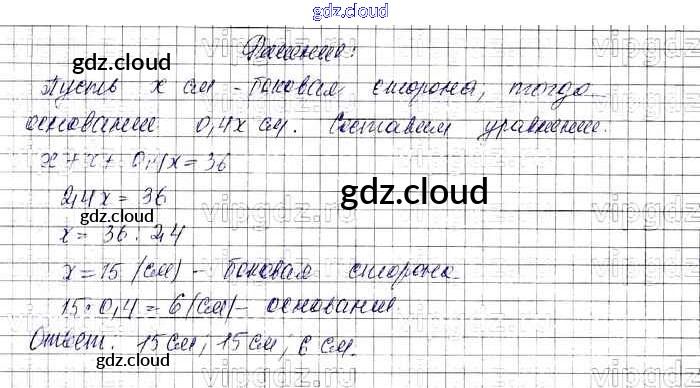 gdz.cloud
Решение:
gdz.cloud
Пусть x см - боковая сторона, тогда
основание 0,4x см. Составим уравнение.
x + x + 0,4x = 36
gdz.cloud
2,4x = 36
gdz.cloud
x = 36 : 2,4
x = 15 (см) - боковая сторона
15 · 0,4 = 6 (см) - основание
Ответ: 15 см, 15 см, 6 см.
gdz.cloud
gdz.cloud
vipgdz.ru